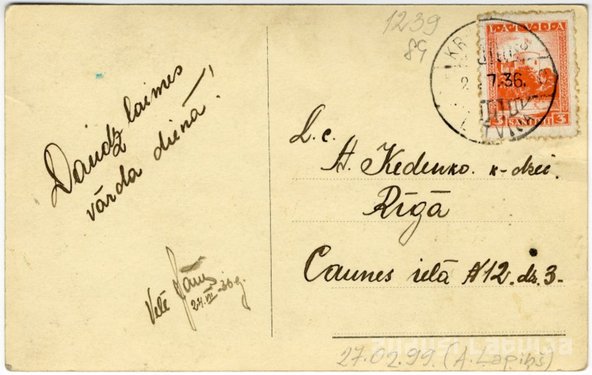 1239
89
LATVIJA
7.36.
3 SANTIMI 3
Daudz laimes
vārda dienā!
Vēlē Jānis
24.VII-36g.
L.c.
A. Kedenko k-dzei.
Rīgā
Caunes ielā №12. dz. 3-
27.02.99. (A. Lapiņš)